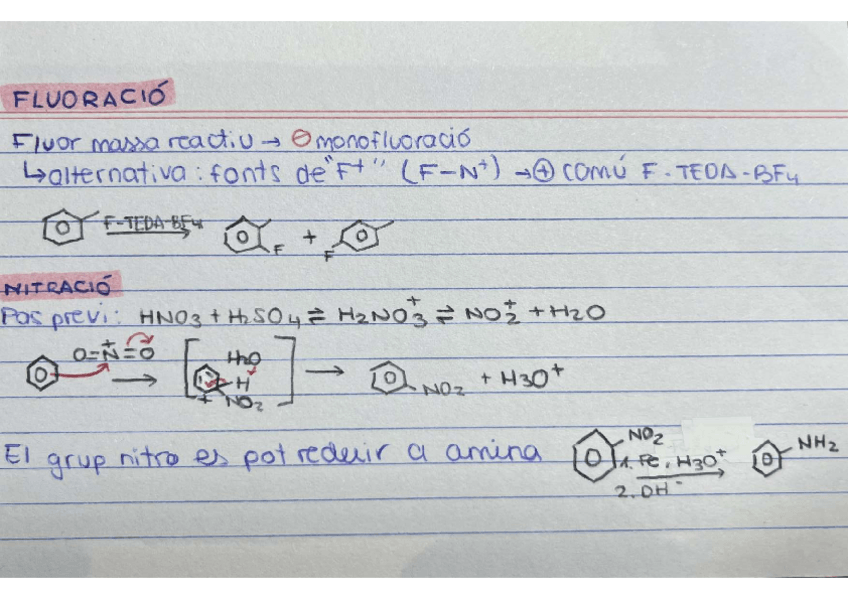 FLUORACIÓ
Fluor massa reactiu → ⊖ monofluoració
↳ alternativa: fonts de "F+" (F-N+) → ⊕ comú F-TEDA-BF4
F-TEDA-BF4
F + F
NITRACIÓ
Pas previ: HNO3 + H2SO4 ⇌ H2NO3+ ⇌ NO2+ + H2O
O=N+=O
H2O
H
+ NO2
NO2 + H3O+
El grup nitro es pot reduir a amina
NO2
1. Fe, H3O+
2. OH-
NH2